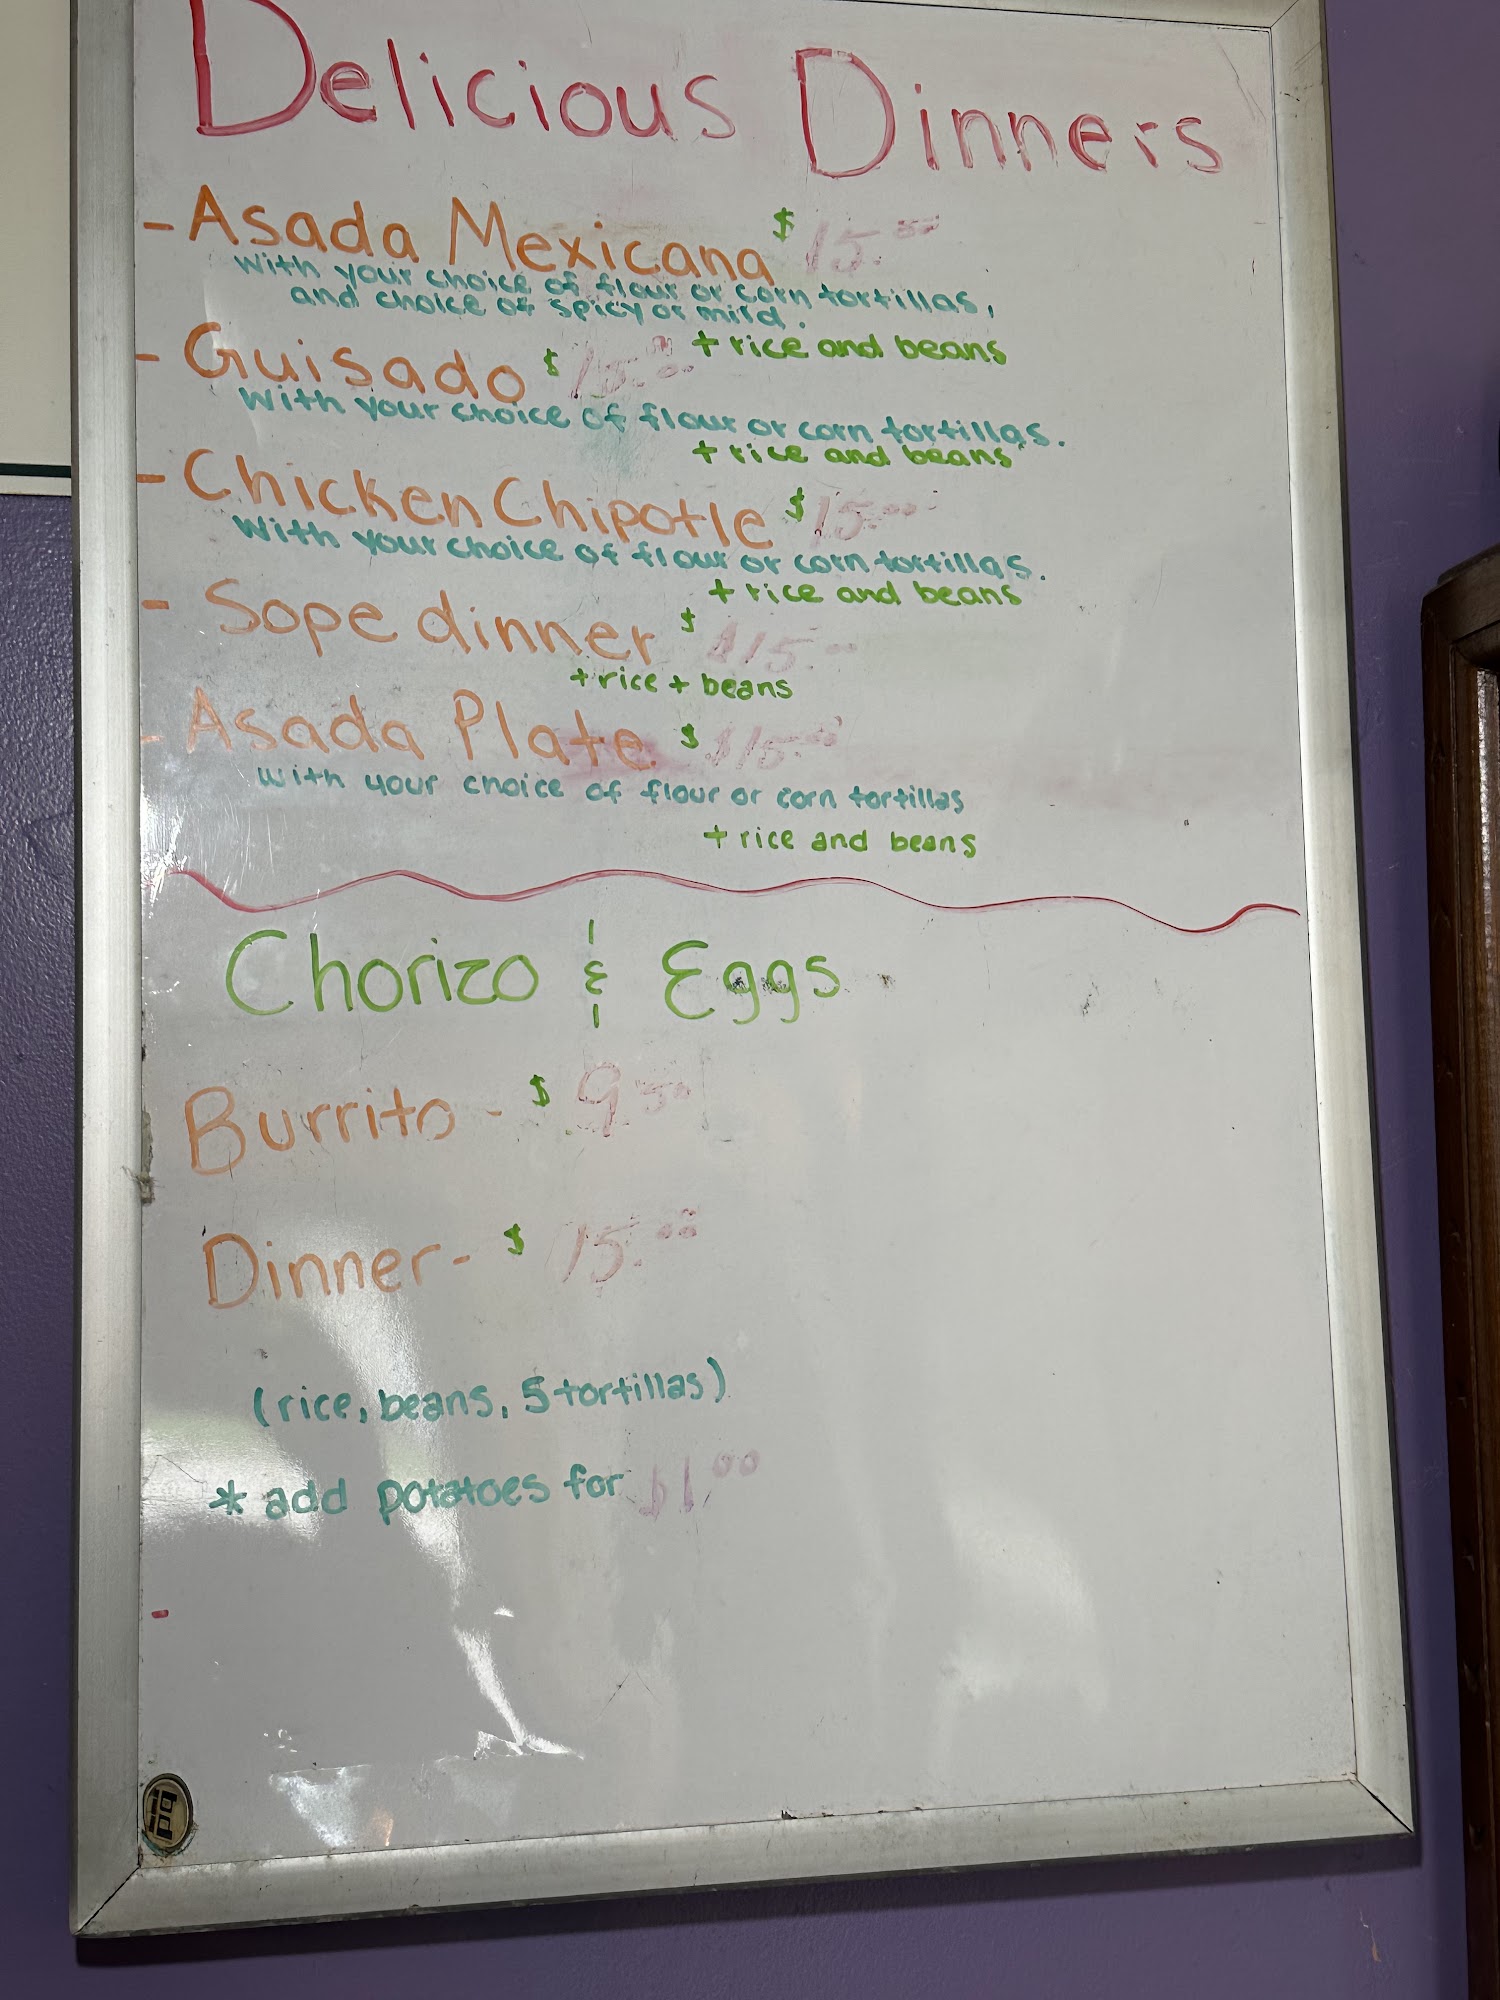 Delicious Dinners
- Asada Mexicana $ 15.00
with your choice of flour or corn tortillas,
and choice of spicy or mild.
+ rice and beans
- Guisado $ 15.00
With your choice of flour or corn tortillas.
+ rice and beans
- Chicken Chipotle $ 15.00
With your choice of flour or corn tortillas.
+ rice and beans
- Sope dinner $ $15.00
+ rice + beans
- Asada Plate $ $15.00
with your choice of flour or corn tortillas
+ rice and beans
Chorizo & Eggs
Burrito - $ 9.50
Dinner - $ 15.00
(rice, beans, 5 tortillas)
* add potatoes for $1.00
-